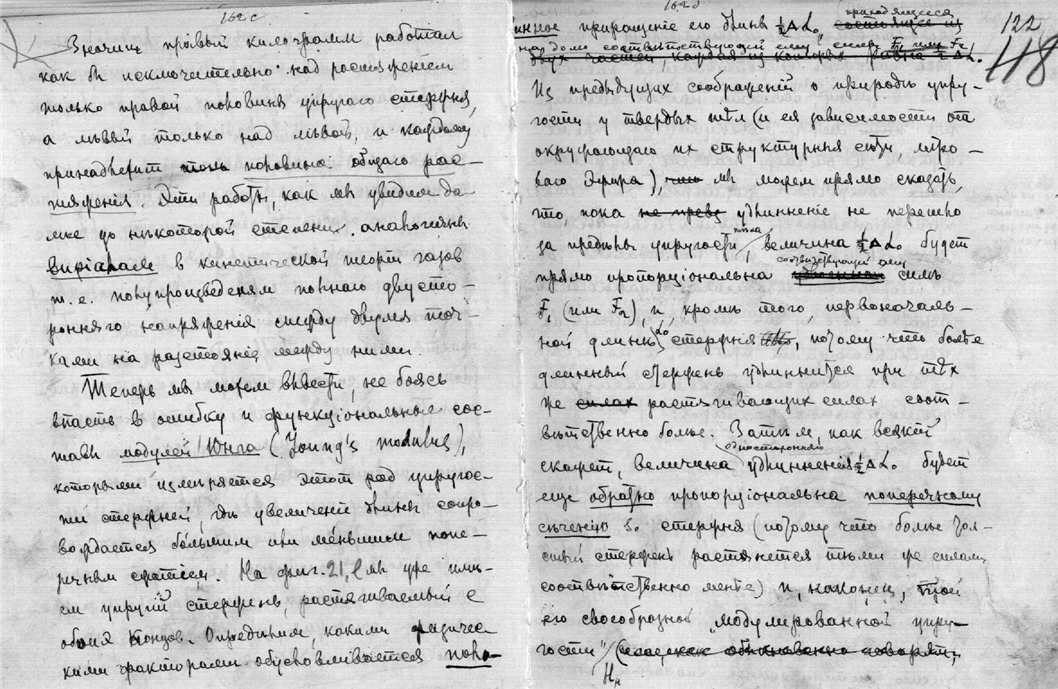 162 c
Значитъ правый килограмм работал
как бы исключительно над растяжением
только правой половины упругаго стержня,
а лѣвый только над лѣвой, и каждому
принадлежит только половина общаго рас-
тяжения. Эти работы, как мы увидим да-
лѣе до нѣкоторой степени аналогичны
вирiалам в кинетической теорiи газов
т. е. полупроизведенiям полнаго двусто-
ронняго напряженiя между двумя точ-
ками на разстоянiе между ними.
Теперь мы можем ввести, не боясь
впасть в ошибку и функцiональные сос-
тавы модулей Юнга (Young's modulus),
которыми измѣряется этот род упругос-
ти стержней, гдѣ увеличенiе длины сопро-
вождается бо́льшим или ме́ньшим попе-
речным сжатiем. На фиг. 21, l мы уже име-
ем упругiй стержень, растягиваемый с
обоих концов. Опредѣлим, какими физичес-
кими факторами обусловливается полo-
162 d
122
48
приходящееся
инное приращенiе его длины ½ΔL₀ состоящее из
на долю соотвѣтствующей ему силы F₁ или F₂
двух частей каждая из которых равна ½ΔL₀
Из предъидущих соображенiй о природѣ упру-
гости у твердых тѣл (и ея зависимости от
окружающаго их структурнѣ сѣти, міро-
ваго Эфира), мы можем прямо сказать,
что, пока не удлинненiе не перешло
за предѣлы упругости, величина ½ΔL₀ будет
соотвѣтствующей ему
прямо пропорцiональна силѣ
F₁ (или F₂), и, кромѣ того, первоначаль-
ной длинѣ L₀ стержня, потому что болѣе
длинный стержень удлиннится при тѣх
же силах растягивающих силах соот-
вѣтственно болѣе. Затѣм, как всякiй
одностороннiй
скажет, величина удлинненiя ½ΔL₀ будет
еще обратно пропорцiональна поперечному
сѣченiю s₀ стержня (потому что болѣе тол-
стый стержень растянется тѣми же силами
соотвѣтственно менѣе) и, наконец, той
его своеобразной „модулированной упру-
гости" (или, как обыкновенно говорят,